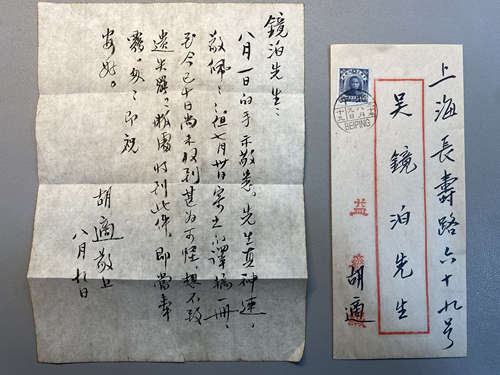 鏡泊先生：
八月一日的手示敬悉。先生真神速，
敬佩！但七月卅日寄上的譯稿一冊，
至今已十日尚未收到，甚為可怪，想不致
遺失罷。收到此件，即當奉
即祝
安好。
胡適敬上
八月九日
上海長壽路六十九号
吳鏡泊先生
益
胡適
BEIPING